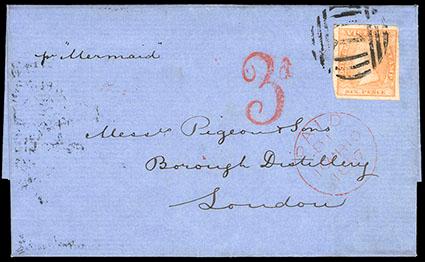 pr "Mermaid"
3d
SIX PENCE
PAID
Messrs Pigeon & Sons
Borough Distillery
London